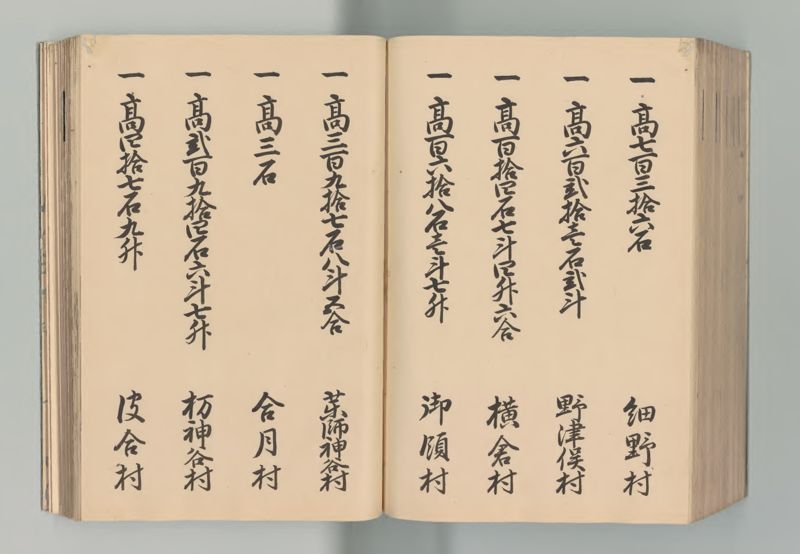 一 高七百三拾六石 細野村
一 高六百弐拾壱石弐斗 野津俣村
一 高百拾四石七斗四升六合 横倉村
一 高百六拾八石壱斗七升 御領村
一 高三百九拾七石八斗五合 薬師神谷村
一 高三石 合月村
一 高弐百九拾四石六斗七升 杤神谷村
一 高四拾七石九升 皮合村